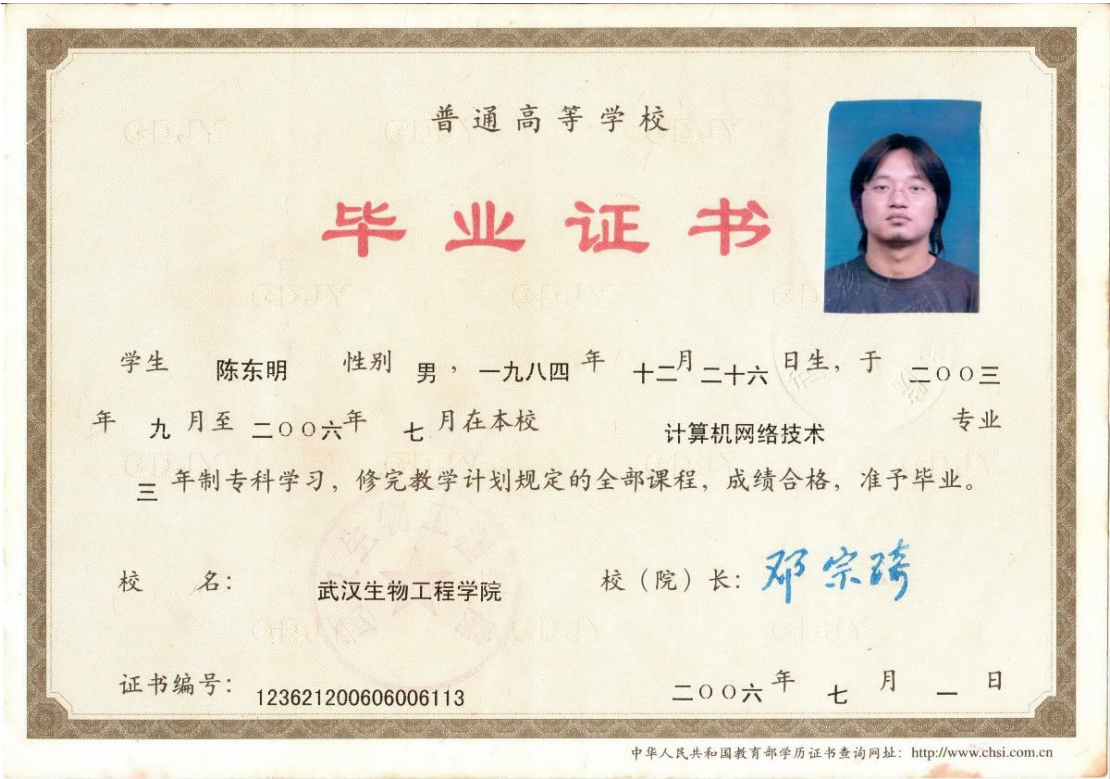 普通高等学校
毕业证书
学生 陈东明 性别 男，一九八四 年 十二月 二十六 日生，于 二〇〇三
年 九 月至 二〇〇六年 七 月在本校 计算机网络技术 专业
三 年制专科学习，修完教学计划规定的全部课程，成绩合格，准予毕业。
校 名：武汉生物工程学院 校（院）长：邓宗琦
证书编号：123621200606006113 二〇〇六 年 七 月 一 日
中华人民共和国教育部学历证书查询网址：http://www.chsi.com.cn